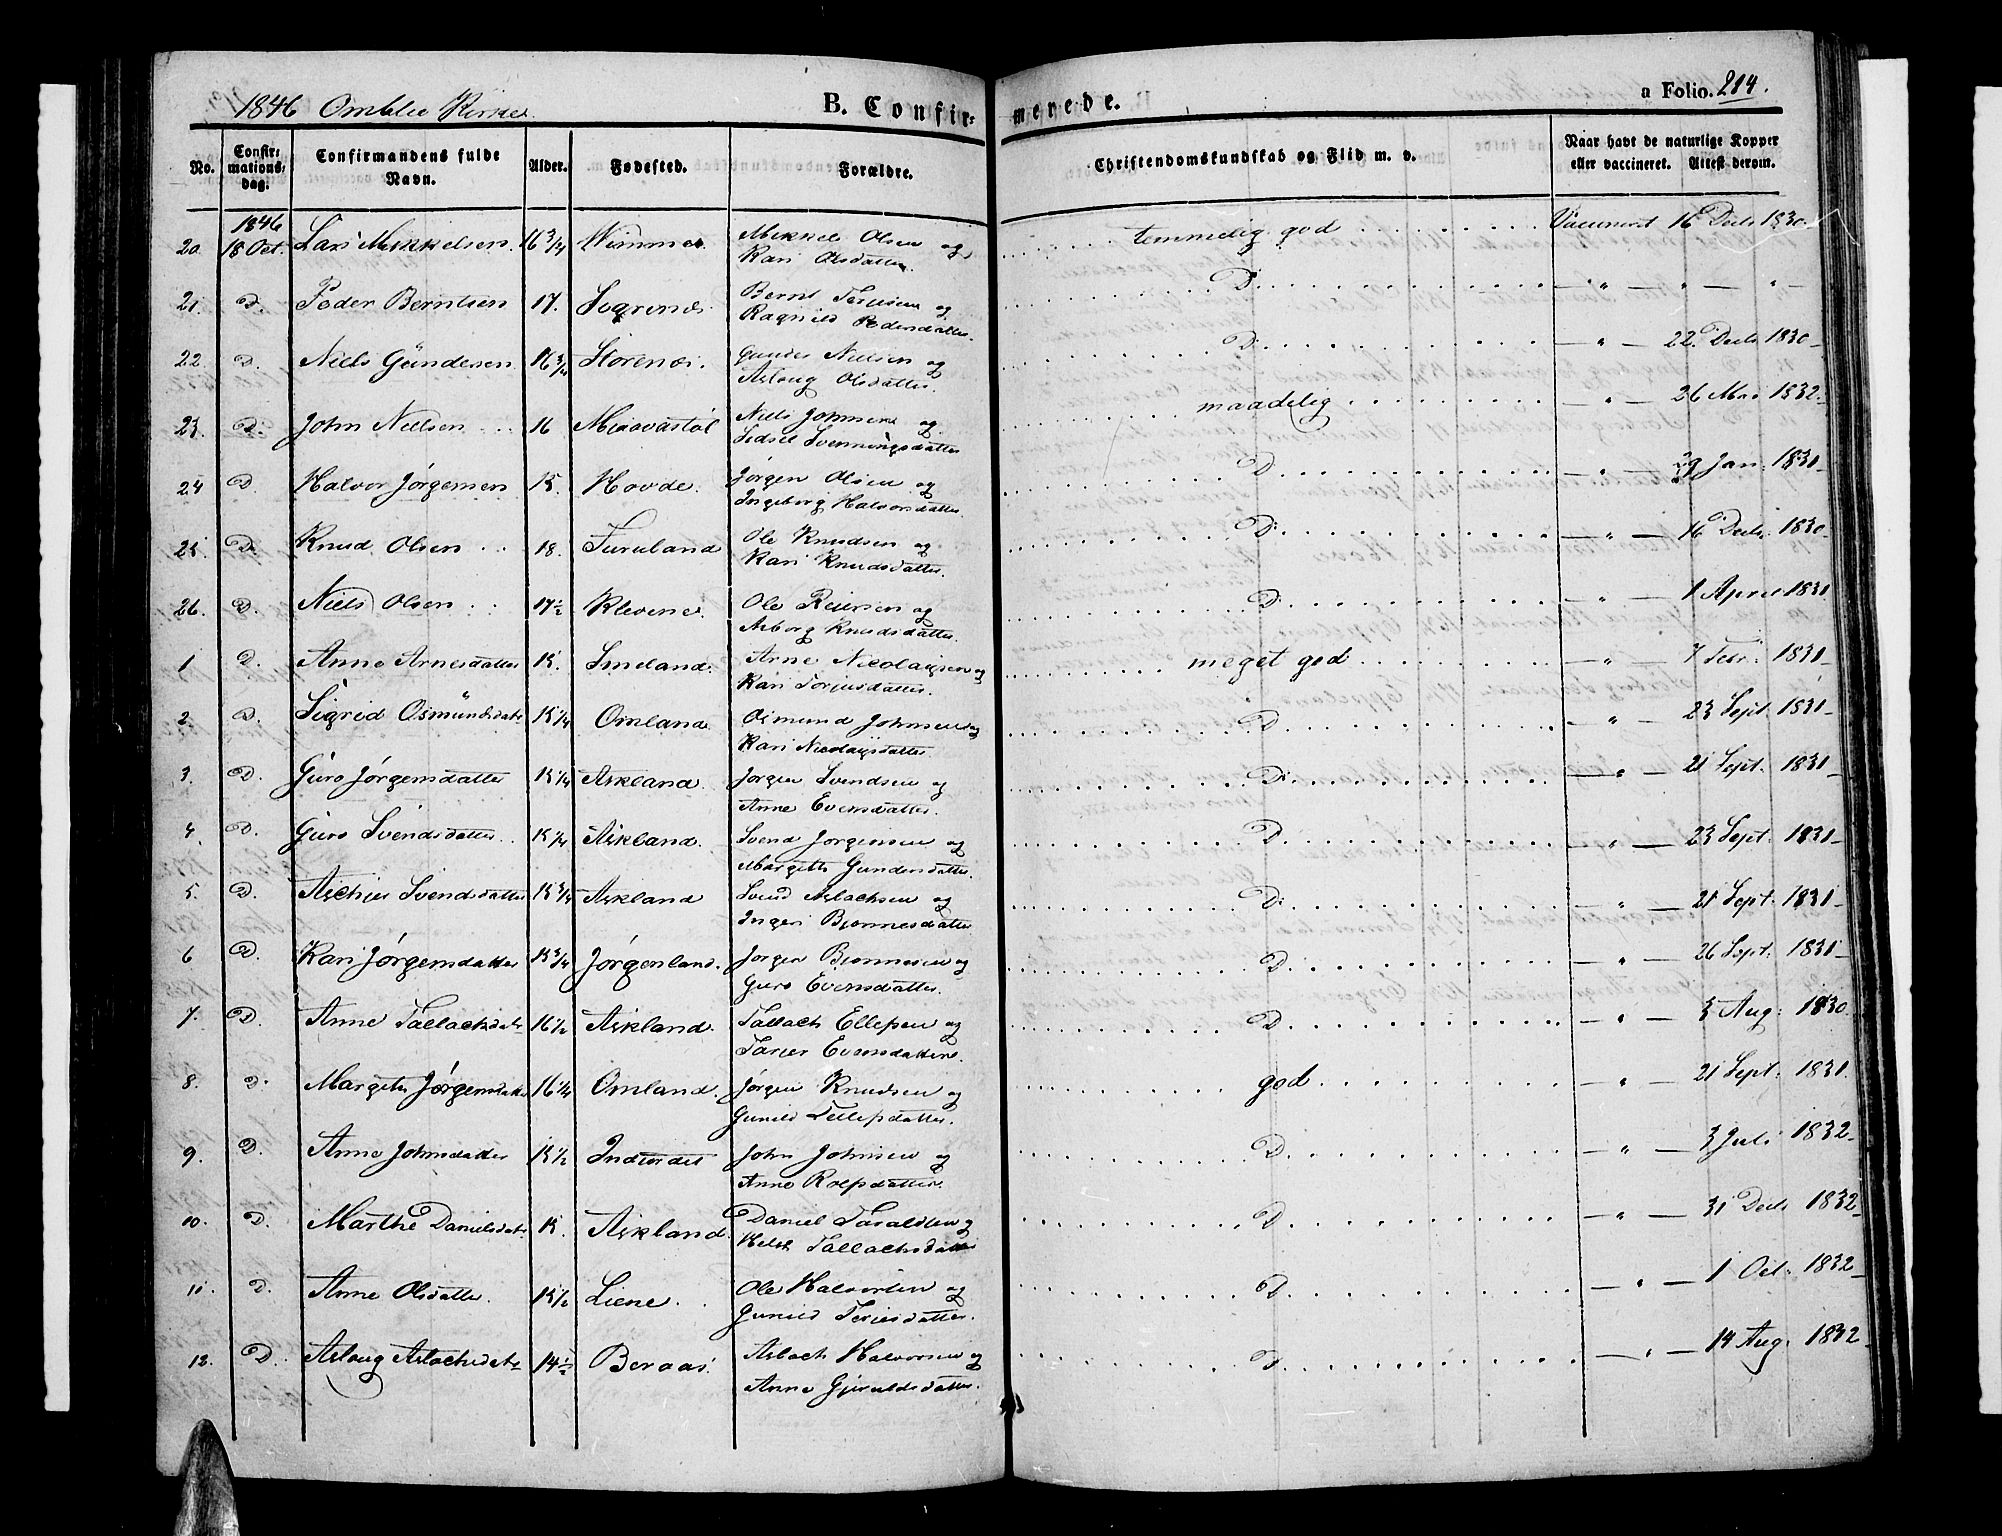 1846 Omblie Kirke. B. Confirmerede. a Folio. 214.
No. Confirmationsdag. Confirmandens fulde Navn. Alder. Fødested. Forældre. Christendomskundskab og Flid m. v. Naar havt de naturlige Kopper eller vaccineret. Attest derom.
1846
20. 18 Oct. Lars Mikkelsen. 16 3/4 Mikkel Olsen og temmelig god Vaccineret 16 Decb 1830
Kari Olsdatter.
21. D. Peder Berntsen 17. Bernt og D. " " " "
Ragnild Pedersdatter.
22. D. Niels Gundersen 16 3/4 Storenæs. Gunder Nielsen og D. " 22 Decb 1830
Aslaug Olsdatter.
23. D. John Nielsen 16 Niels Johnsen og maadelig " 26 Mai 1832.
Sidsel Svenningsdatter
24 D. Halvor Jørgensen 15. Hovde. Jørgen Olsen og D. " 29 Jan: 1831
Ingeborg Halvorsdatter.
25. D. Knud Olsen 18. Furuland Ole Knudsen og D. " 16 Decb. 1830
Kari Knudsdatter.
26. D. Niels Olsen 17½ Klevene Ole Reiersen og D. " 1 April 1831
Asborg Knudsdatter.
1 D. Anne Arnesdatter 15. Smeland. Arne Nicolaysen og meget god " 7 Febr: 1831
Kari Torjusdatter.
2. D. Sigrid Osmundsdatr 15 1/4 Omland. Osmund Johnsen og D. " 23 Sept. 1831
Kari Nicolaysdatter
3. D. Guro Jørgensdatter 15 1/4 Askland. Jørgen Svendsen og D. " 21 Sept. 1831
Anne Evensdatter.
4. D. Guro Svendsdatter 15 1/4 Askland. Svend Jørgensen og D. " 23 Sept. 1831
Margithe Gundersdatter.
5. D. Aschjer Svendsdatter 15 3/4 Askland Svend Aslachsen og D. " 21 Sept. 1831
Ingeri Bjønnesdatter
6 D. Kari Jørgensdatter 15 3/4 Jørgenland. Jørgen Bjønnesen og D. " 26 Sept: 1831
Guro Evensdatter.
7. D. Anne Tallachsdatr 16 1/2 Askland. Tallach Ellefsen og D. " 3 Aug: 1830
Evensdatter.
8. D. Margithe Jørgensdatter 16 1/4 Omland. Jørgen Knudsen og god " 21 Sept: 1831.
Gunild Tellefsdatter.
9. D. Anne Johnsdatter 15 1/2 John Johnsen og D. " 3 Juli 1832
Anne Rolfsdatter.
10. D. Marthe Danielsdatr 15. Askland. Daniel Taraldsen og D. " 31 Decb 1832
Tallachsdatter
11. D. Anne Olsdatter. 15 1/2 Liene. Ole Halvorsen og D. " 1 Oct. 1832
Gunild Terjesdatter.
12. D. Aslaug Aslachsdatr 14½ Beraas. Aslach Halvorsen og D. " 14 Aug. 1832
Anne Gjeruldsdatter.